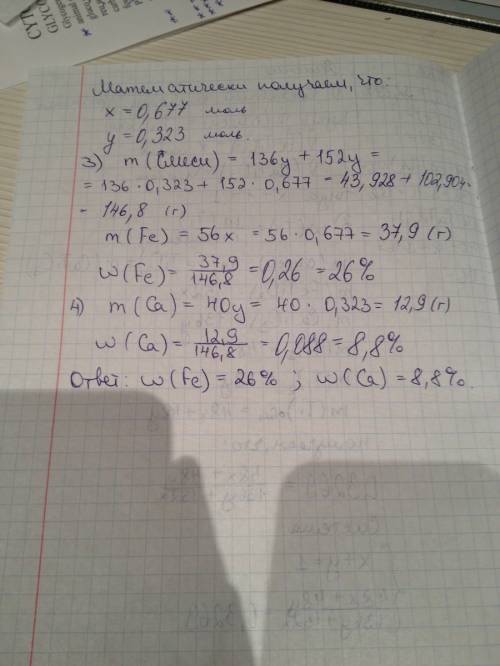 CYT
GLYCO
Математически получаем, что:
x = 0,677 моль
y = 0,323 моль.
3) m (смеси) = 136y + 152y =
= 136 · 0,323 + 152 · 0,677 = 43,928 + 102,904 =
= 146,8 (г)
m (Fe) = 56x = 56 · 0,677 = 37,9 (г)
w (Fe) = 37,9/146,8 = 0,26 = 26%
4) m (Ca) = 40y = 40 · 0,323 = 12,9 (г)
w (Ca) = 12,9/146,8 = 0,088 = 8,8%
Ответ: w (Fe) = 26% ; w (Ca) = 8,8%.